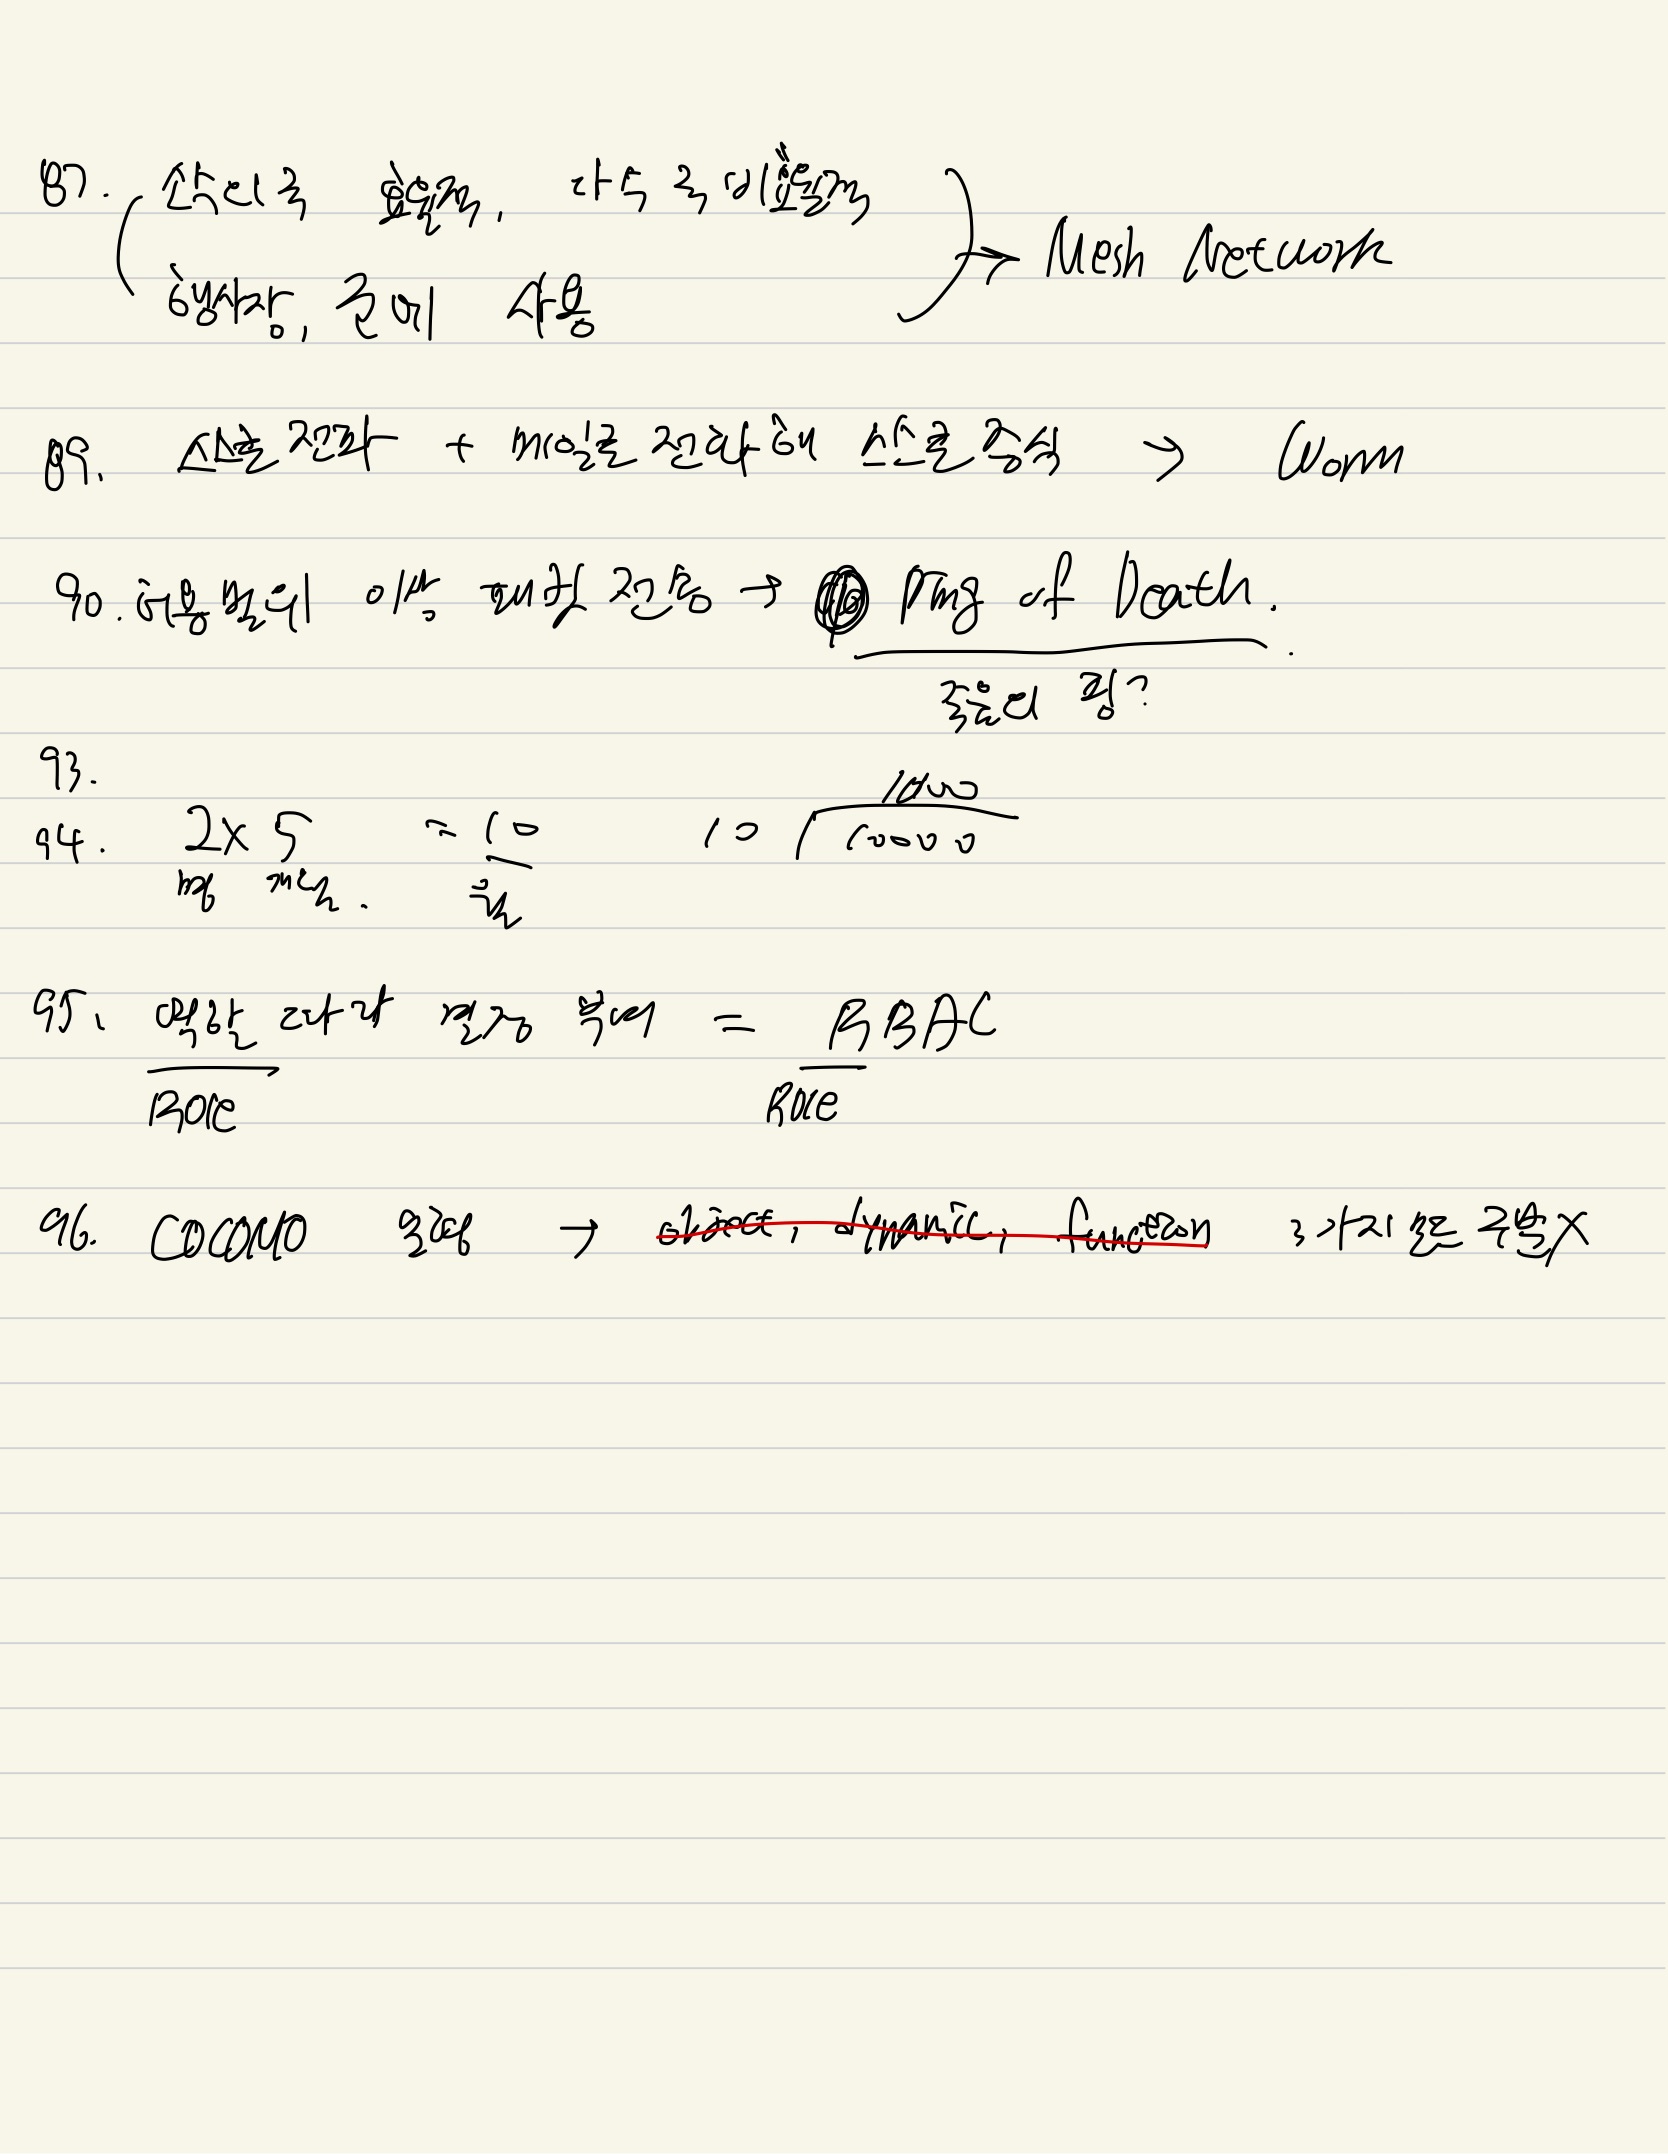 87. 산악지역 효율적, 다수 국 비효율적
행사장, 군에 사용 → Mesh Network
89. 스스로 전파 + 메일로 전파해 스스로 증식 → Worm
90. 허용범위 이상 패킷 전송 → Ping of Death.
죽음의 핑?
93.
94. 2 x 5 = 10 10 10000 1000
명 개월.
95. 역할 따라 결정 부여 = RBAC
Role Role
96. COCOMO 모형 → object, dynamic, function 3가지로 구분X